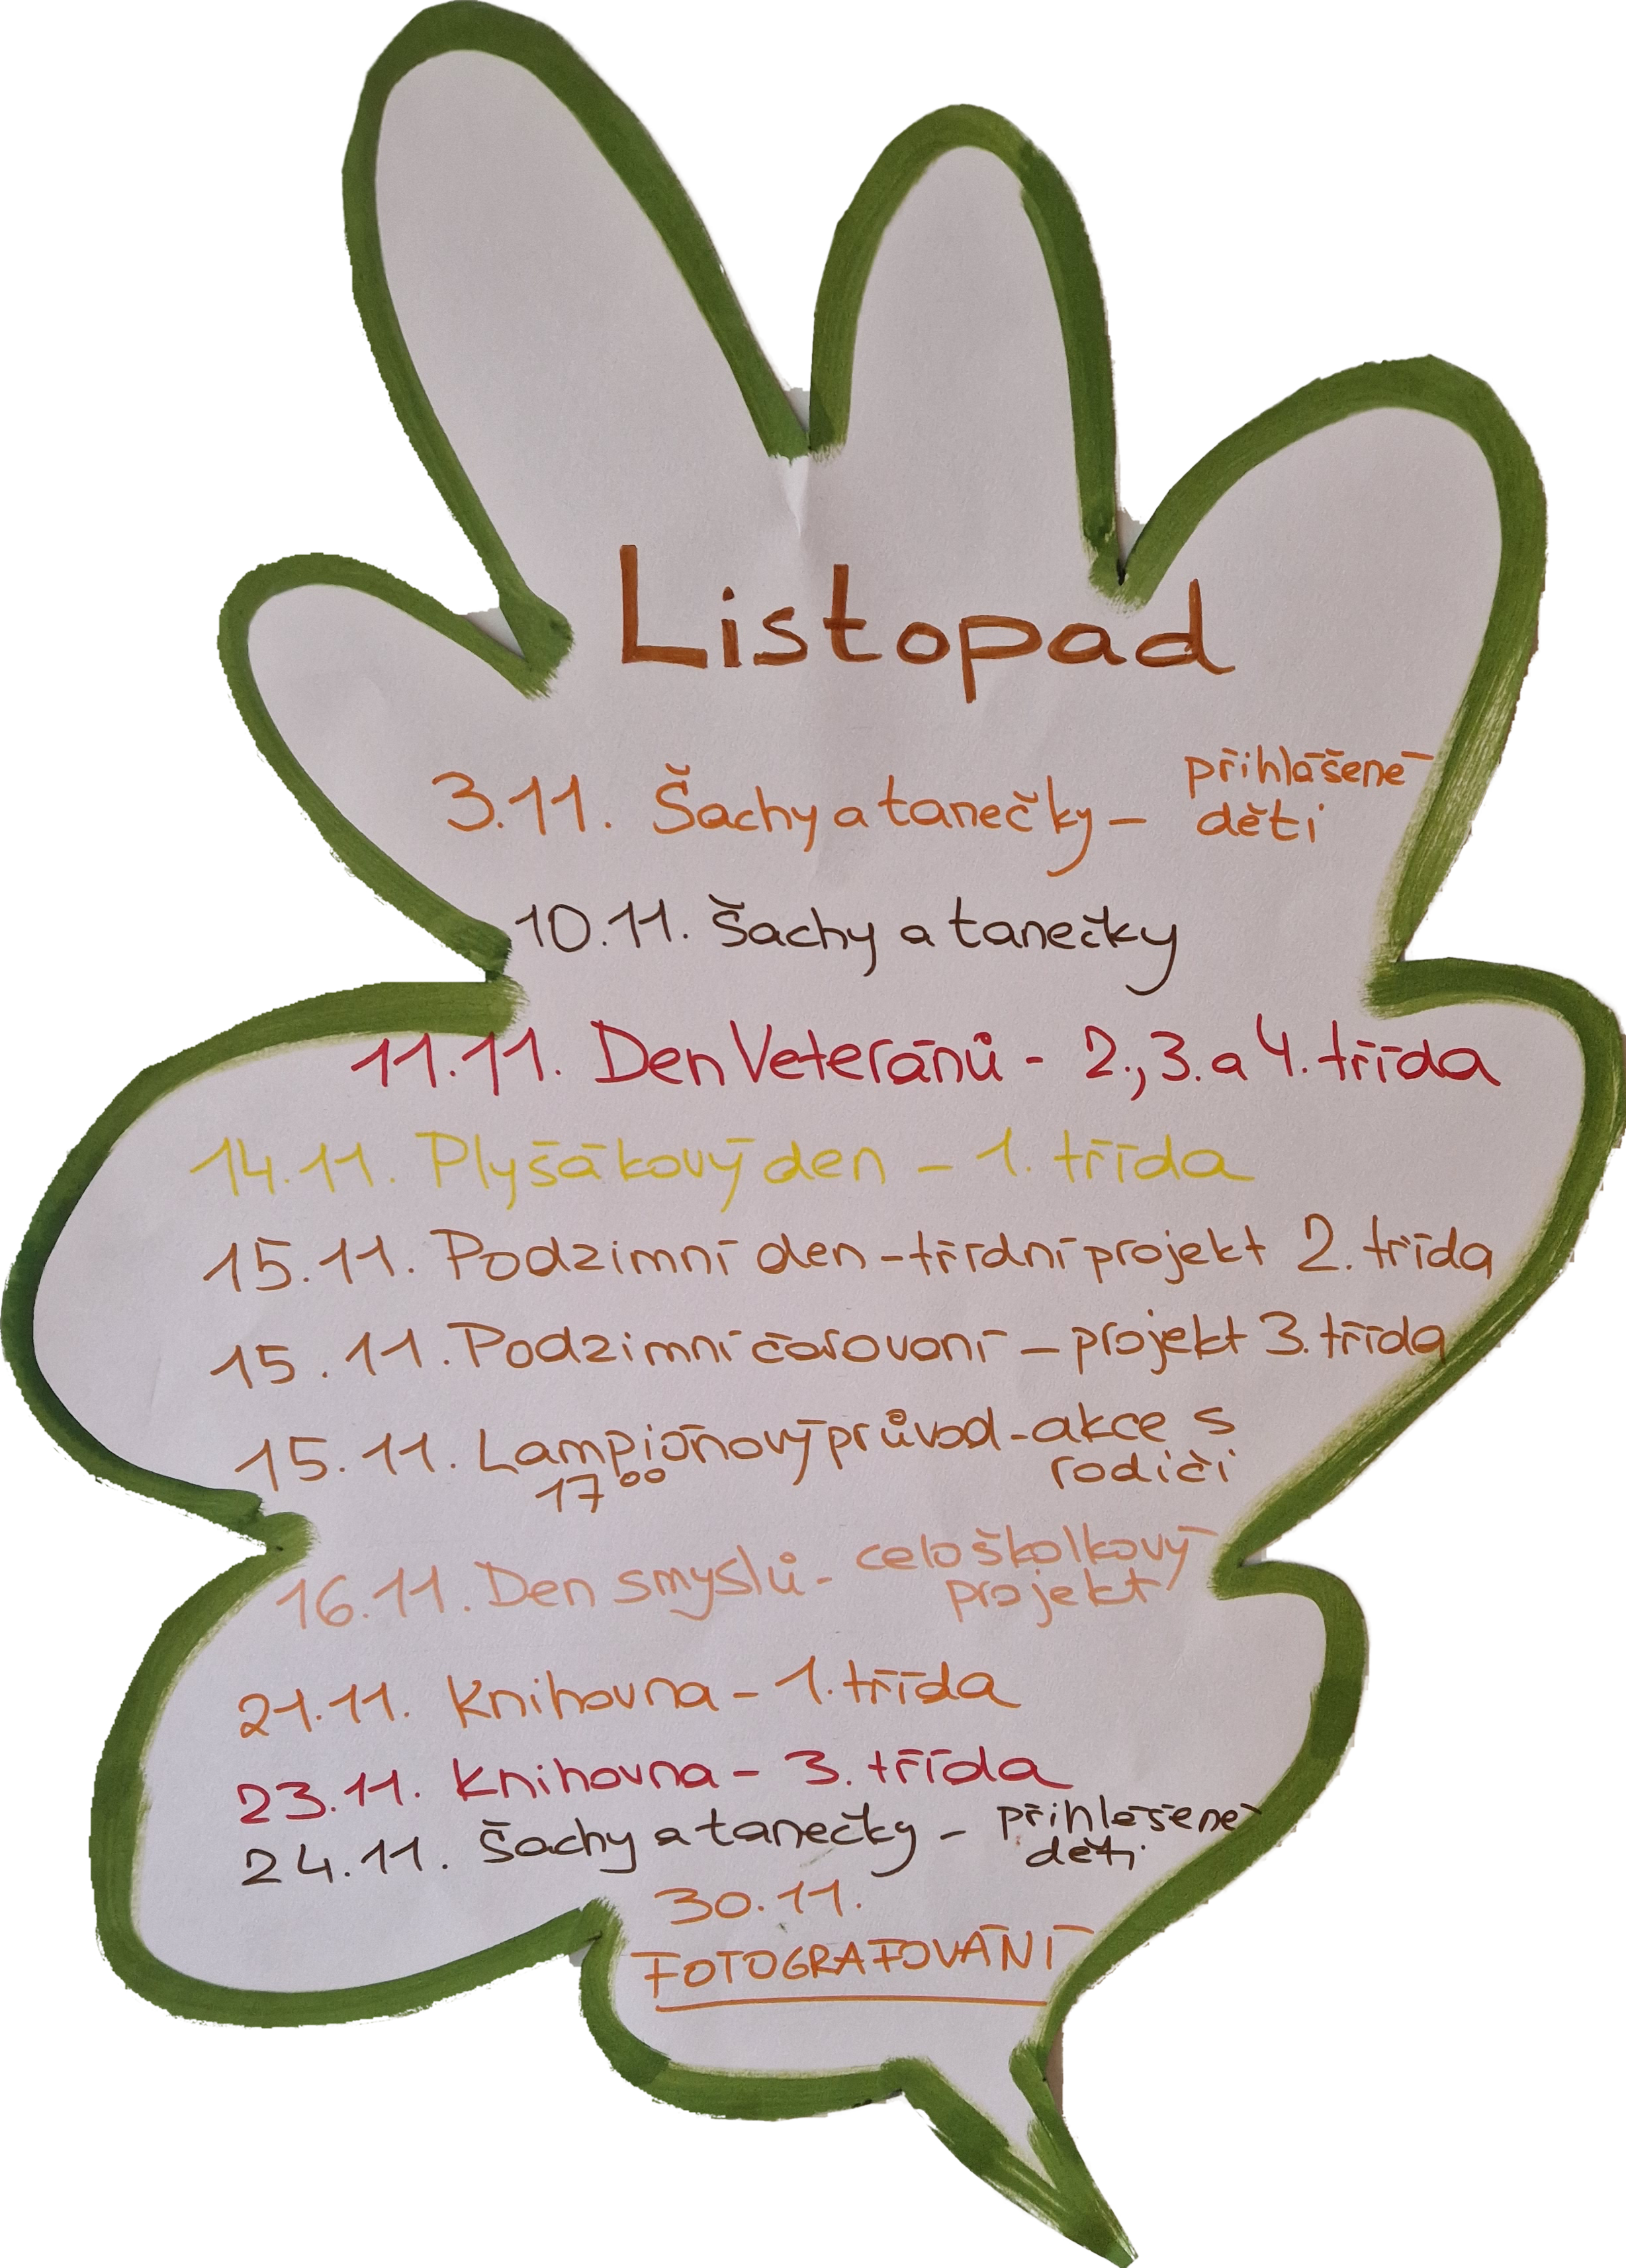 Listopad
3.11. Šachy a tanečky - přihlášené
děti
10.11. Šachy a tanečky
11.11. Den Veteránů - 2., 3. a 4. třída
14.11. Plyšákový den - 1. třída
15.11. Podzimní den - třídní projekt 2. třída
15.11. Podzimní čarování - projekt 3. třída
15.11. Lampiónový průvod - akce s
17⁰⁰ rodiči
16.11. Den smyslů - celoškolkový
projekt
21.11. Knihovna - 1. třída
23.11. Knihovna - 3. třída
24.11. Šachy a tanečky - přihlášené
děti
30.11.
FOTOGRAFOVÁNÍ